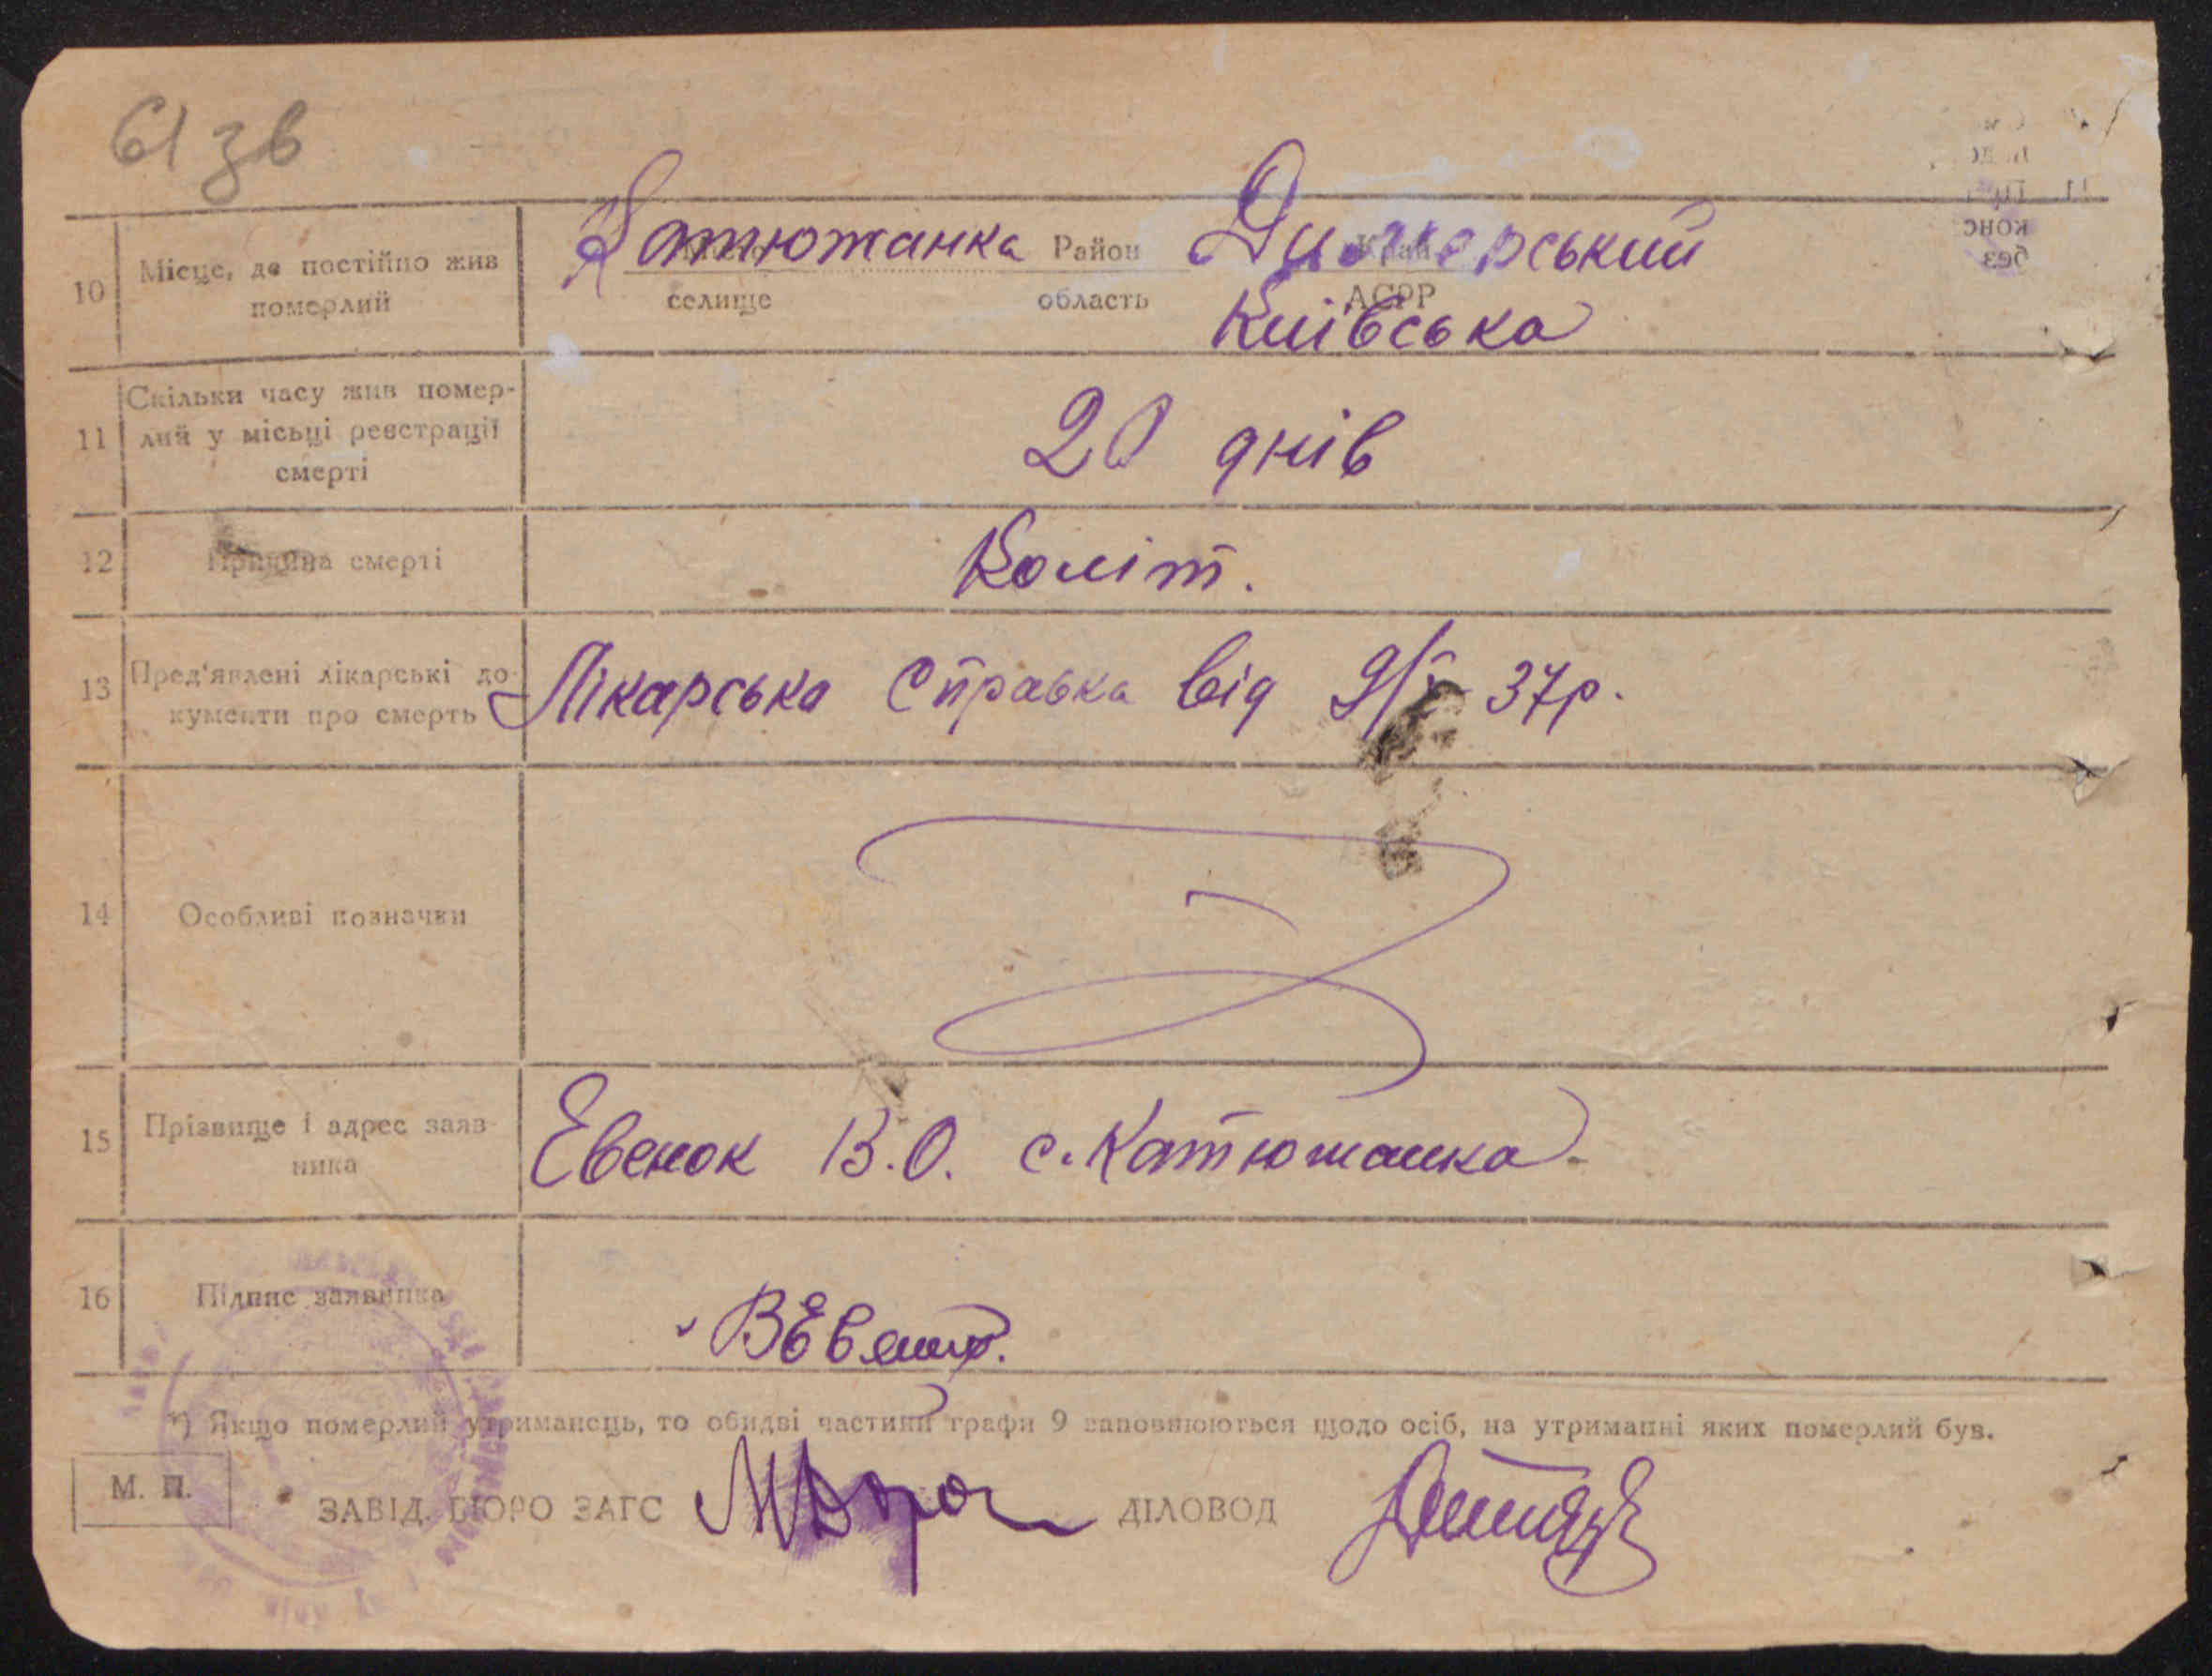 61 зв
10 Місце, де постійно жив Катюжанка Район Димерський Край
померлий селище область АСРР
Київська
Скільки часу жив помер-
11 лий у місьці реєстрації 20 днів
смерті
12 Причина смерті Коліт.
13 Пред'явлені лікарські до- Лікарська справка від 37р.
кументи про смерть
14 Особливі позначки
15 Прізвище і адрес заяв- Евенок В.О. с. Катюжанка
ника
16 Підпис заявника
*) Якщо померлий утриманець, то обидві частини графи 9 заповнюються щодо осіб, на утриманні яких померлий був.
М. П.
ЗАВІД. БЮРО ЗАГС ДІЛОВОД